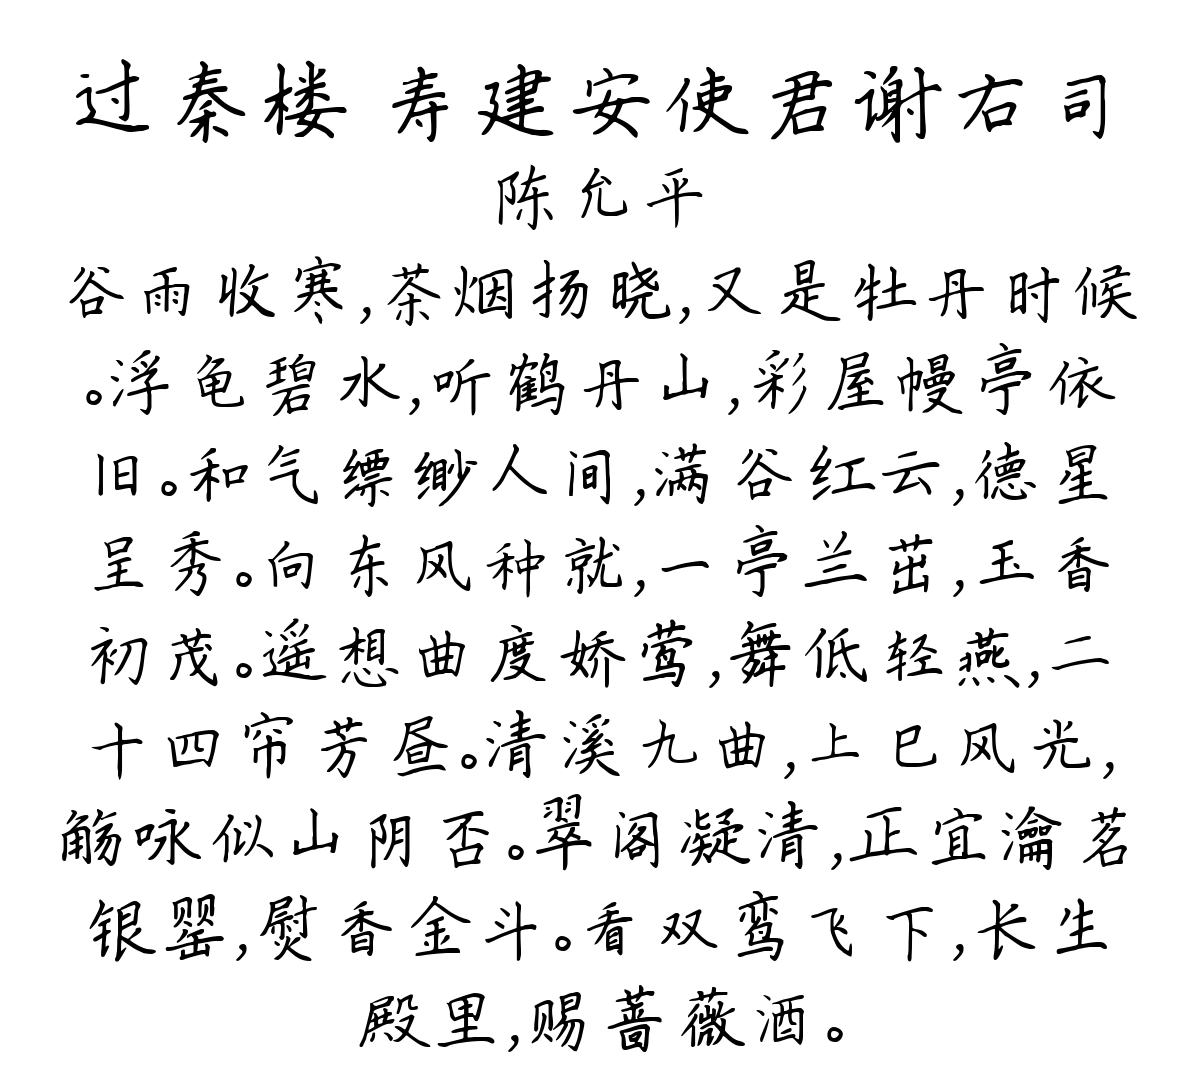 过秦楼 寿建安使君谢右司
陈允平
谷雨收寒,茶烟扬晓,又是牡丹时候
。浮龟碧水,听鹤丹山,彩屋幔亭依
旧。和气缥缈人间,满谷红云,德星
呈秀。向东风种就,一亭兰茁,玉香
初茂。遥想曲度娇莺,舞低轻燕,二
十四帘芳昼。清溪九曲,上巳风光,
觞咏似山阴否。翠阁凝清,正宜瀹茗
银罂,熨香金斗。看双鸾飞下,长生
殿里,赐蔷薇酒。